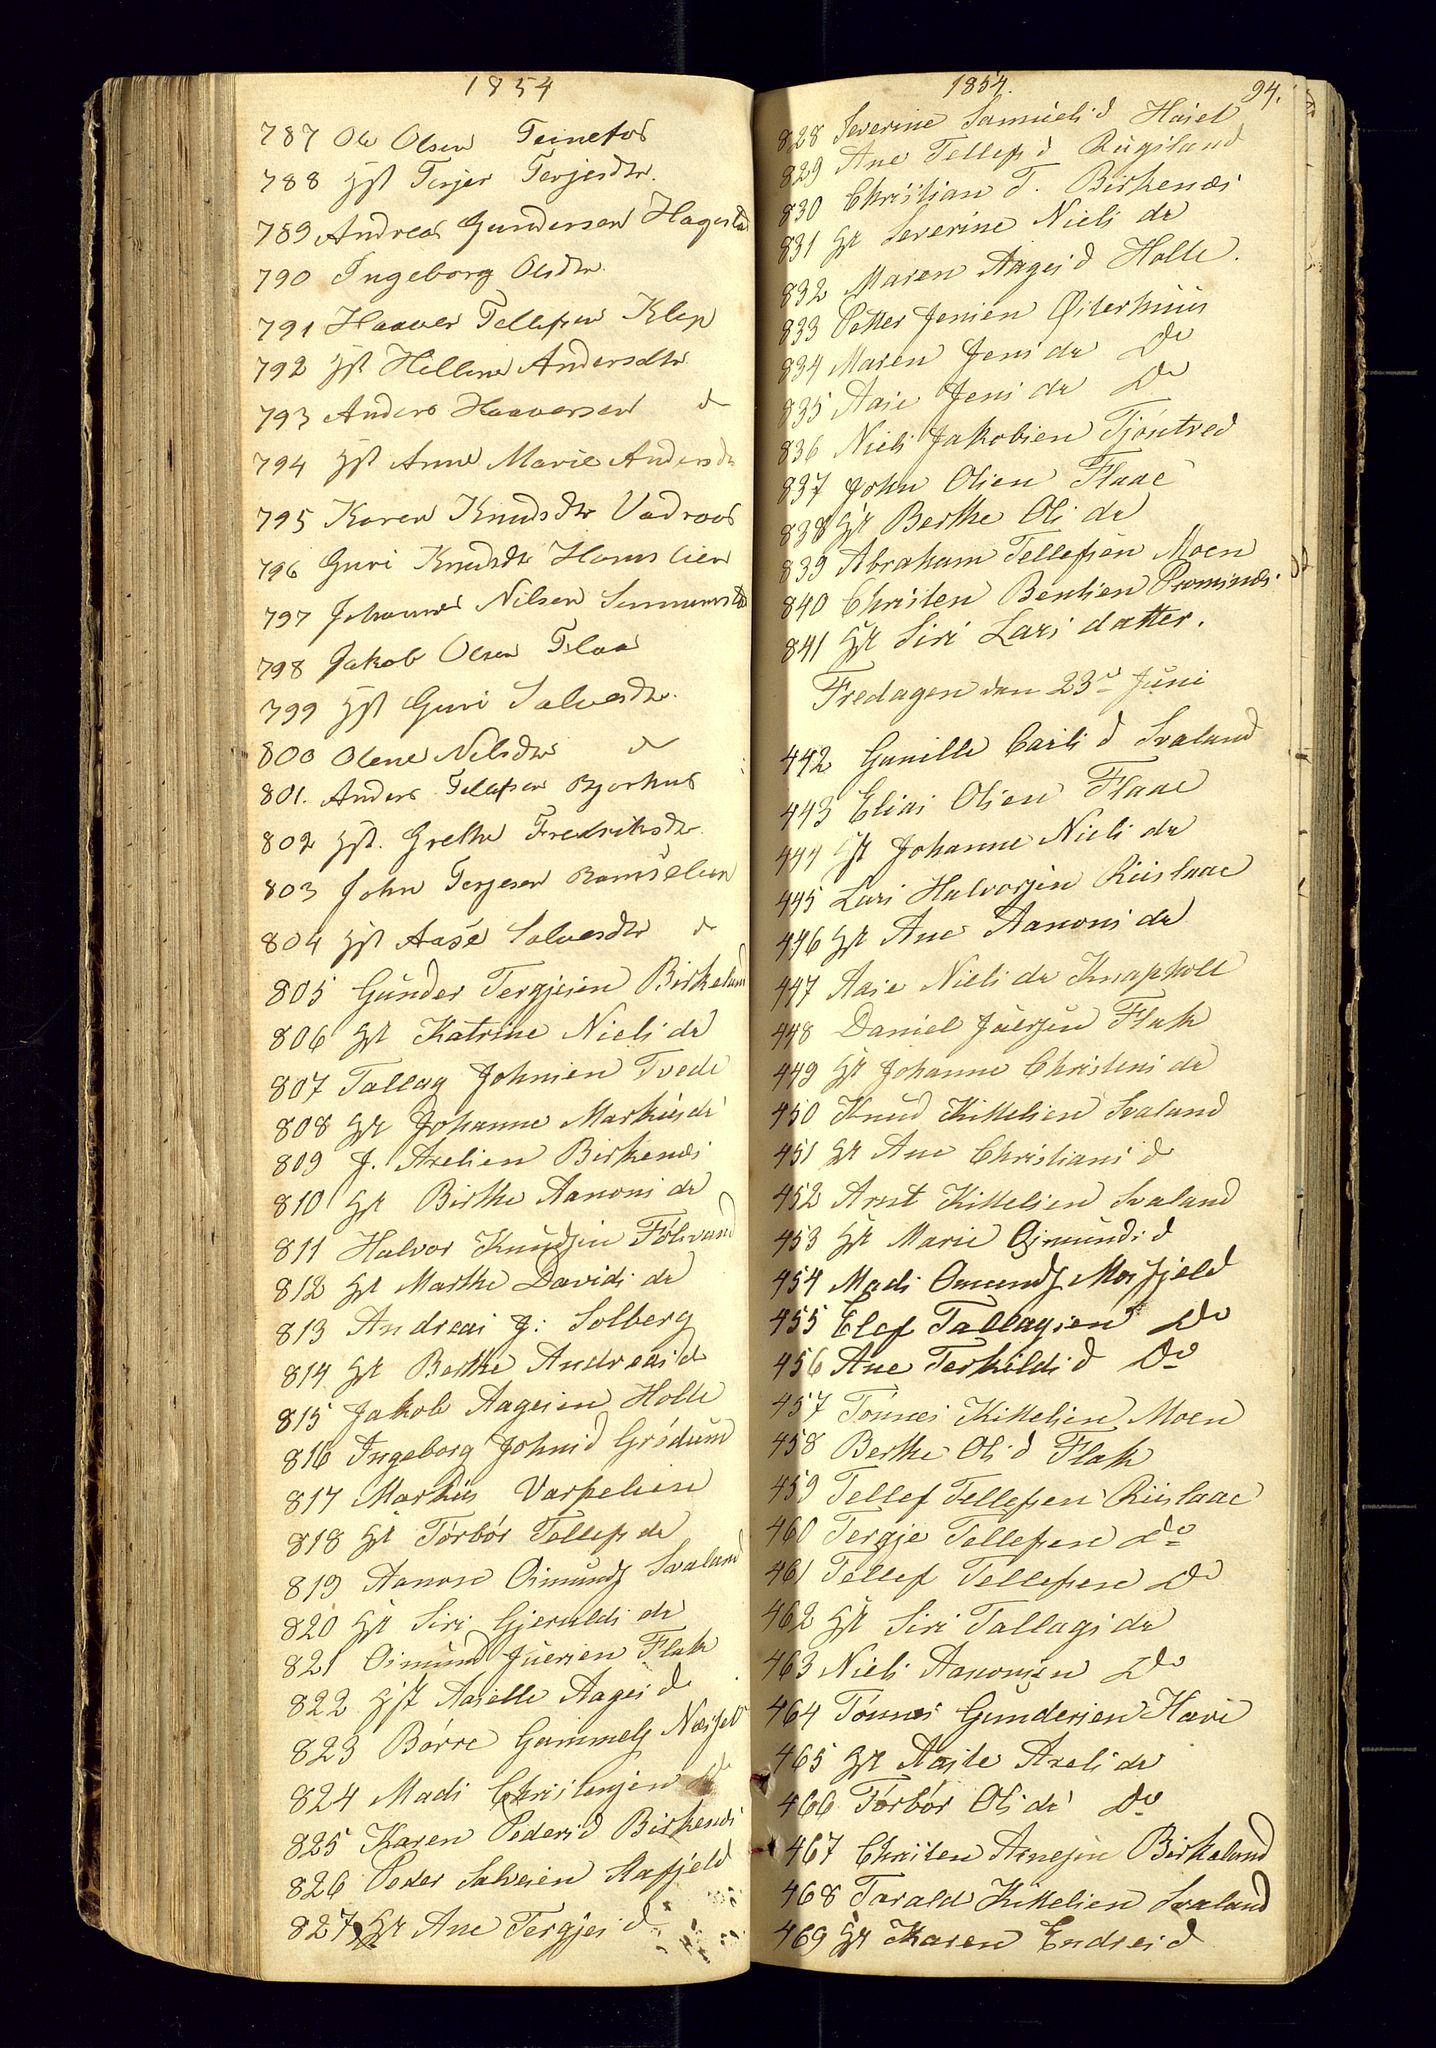 1854
787 Ole Olsen Teinefos
788 Hst Terjer Terjesdtr.
789 Andreas Gundersen Hagestad
790 Ingeborg Olsdtr.
791 Haaver Tellefsen Klep
792 Hst Helline Andersdtr
793 Anders Haaversen do
794 Hst Anne Marie Andersdr
795 Karen Knudsdtr Vadroos
796 Guri Knudsdtr
797 Johannes Nilsen
798 Jakob Olsen Flaa
799 Hst Guri Salvesdtr.
800 Olene Nilsdtr do
801. Anders Tellefsen Bjorkus
802 Hst. Grethe Fredriksdtr.
803 John Terjesen Ramselien
804 Hst Aase Salvesdtr do
805 Gunder Tergjesen Birkeland
806 Hst Katrine Niels dr
807 Tallag Johnsen Tvede
808 Hst Johanne Markusdr
809 J. Axelsen Birkenes
810 Hst Birthe Aanons dr
811 Halvor Knudsen
812 Hst Marthe Davids dr
813 Andreas J: Solberg
814 Hst Berthe Andreas d
815 Jakob Aagesen Holte
816 Ingeborg Johns d Grødum
817 Markus Varpelien
818 Hst Tørbør Tellefs dr
819 Aanon Osmunds Svaland
820 Hst Siri Gjeralds dr
821 Osmund Juersen Flak
822 Hst Aaselle Aages d
823 Børre Gammels
824 Mads Christensen Do
825 Karen Peders d Birkenes
826 Peder Salvesen
827 Hst Ane Tergjes d
1854. 94.
828 Severine Samuels d
829 Ane Tellefs d Rugsland
830 Christian T. Birkenes
831 Hst Severine Niels dr
832 Maren Aages d Holte.
833 Petter Jensen Østerhuus
834 Maren Jens dr Do
835 Aase Jens dr Do
836 Niels Jakobsen Tjøntved
837 John Olsen Flaae
838 Hst Berthe Ols dr
839 Abraham Tellefsen Moen
840 Christen Bentsen
841 Hst Siri Lars datter.
Fredagen den 23de Juni
442 Gunille Carls d Svaland
443 Elias Olsen Flaae
444 Hst Johanne Niels dr
445 Lars Halvorsen Riislaae
446 Hst Ane Aanons dr
447 Aase Niels dr Knapholt
448 Daniel Juersen Flak
449 Hst Johanne Christens dr
450 Knud Kittelsen Svaland
451 Hst Ane Christians d
452 Arnt Kittelsen Svaland
453 Hst Marie Osmunds d
454 Mads Omunds Mosfjeld
455 Elef Tallagsen Do
456 Ane Terkilds d Do
457 Tønnes Kittelsen Moen
458 Berthe Ols d Flak
459 Tellef Tellefsen Riislaae
460 Tergje Tellefsen Do
461 Tellef Tellefsen Do
462 Hst Siri Tallags dr
463 Niels Aanonsen Do
464 Tønnes Gundersen Have
465 Hst Aaste Axels dr
466 Tørbør Ols dr Do
467 Christen Arnesen Birkeland
468 Tarald Kittelsen Svaland
469 Hst Karen Endres d